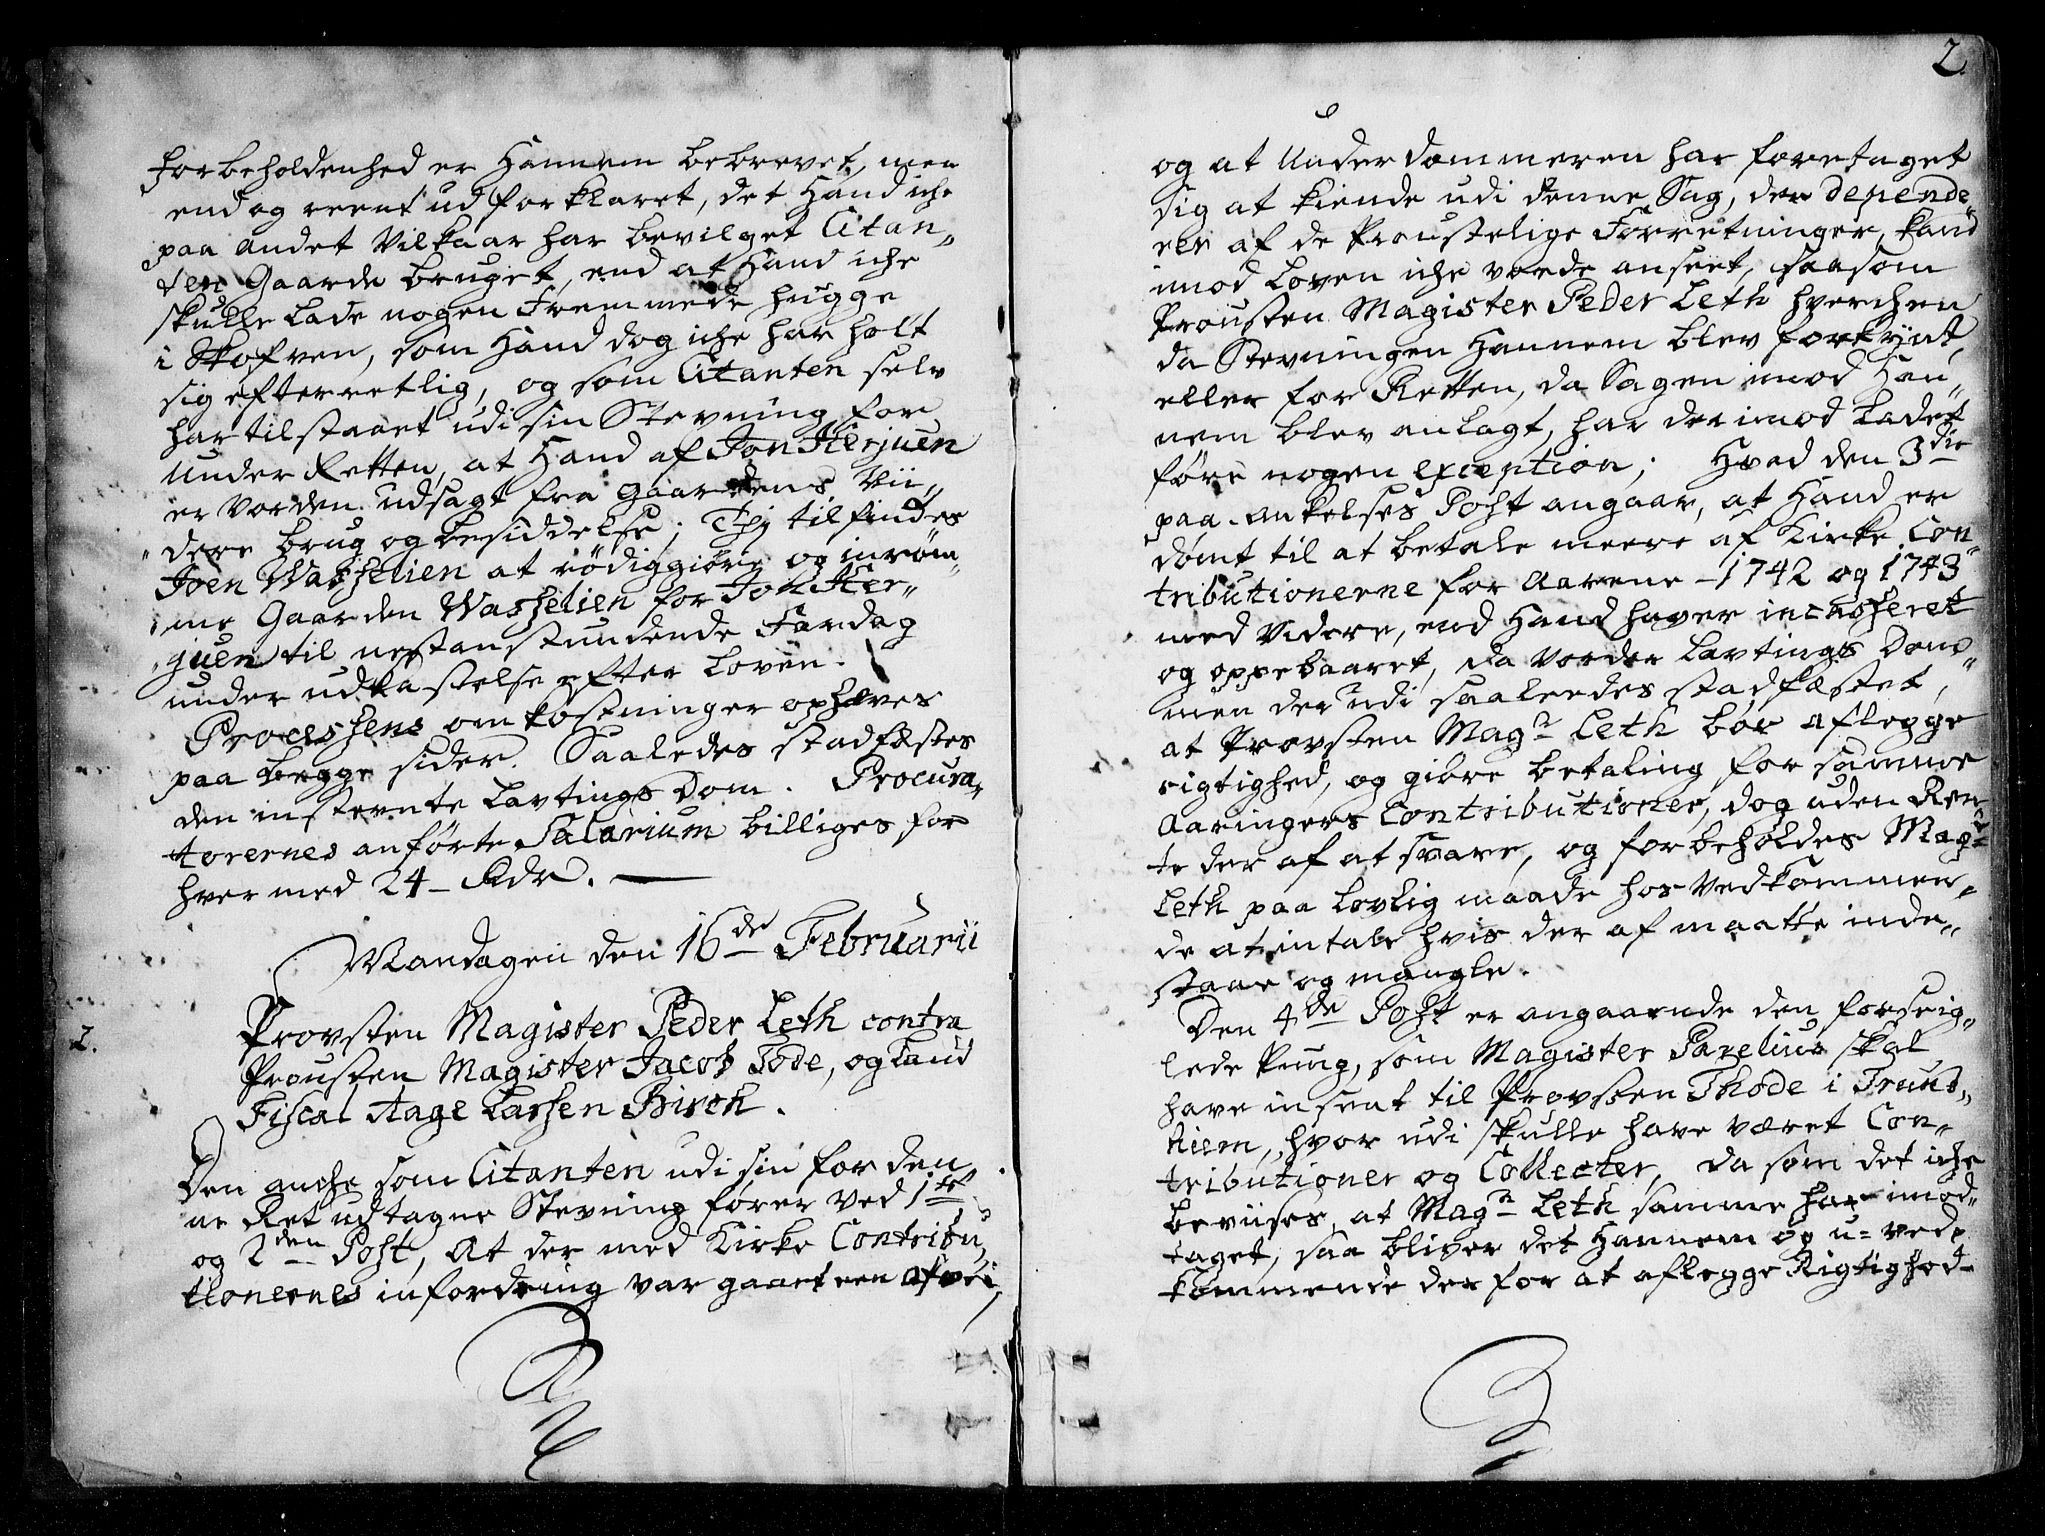 forbeholdenhed er Hannem bebrevet, men
end og reent ud forklaret, det Hand iche
paa andet Vilkaar har bevilget Citan„
den Gaarde bruget, end at Hand iche
skulle lade nogen Fremmede hugge
i Skofven, som Hand dog iche har holt
sig efterretlig, og som Citanten selv
har tilstaaet udi sin Stevning for
Under Retten, at Hand af Jon Herjuen
er vorden udsagt fra Gaardens Vii„
„dere brug og besiddelse; Thj tilfindes
Joen Wasselien at rödiggiöre og inröm„
„me Gaarden Wasselien for Jon Her„
„juen til nestanstundende Fardag
under udkastelse efter Loven.
Processens omkostninger ophæves
paa begge sider. Saaledes stadfæstes
den instevnte Lavtings Dom. Procura„
torernes anførte Salarium billiges for
hver med 24 – Rdr.
Mandagen den 16de Februarii
2.
Provsten Magister Peder Leth contra
Prousten Magister Jacob Tode, og Land
Fiscal Aage Lassen Birch.
Den anche som Citanten udi sin for den„
ne Ret udtagne Stevning fører ved 1ste
og 2den Post, At der med Kirke Contribu„
tionernes infordring var gaaet een afvei,
2.
og at Underdommeren har foretaget
sig at kiende udi denne Sag, der depende„
rer af de Proustelige Forretninger, kand
imod Loven iche vorde anseet, saasom
Prousten Magister Peder Leth hverchen
da Stevningen Hannem blev forkÿnt,
eller for Retten, da Sagen imod Han„
nem blev anlagt, har derimod ladet
føre nogen exception; Hvad den 3die
paa-ankelses Post angaar, at Hand er
dømt til at betale meere af Kirke Con„
tributionerne for Aarene – 1742 og 1743
med Videre, end Hand haver incasseret
og oppebaaret, da vorder Lavtings Dom„
men der udi saaleedes stadfæstet,
at Provsten Magr Leth bør aflegge
rigtighed, og giöre betaling for samme
Aaringers Contributioner, dog uden Ren„
te der af at svare, og forbeholdes Magr
Leth paa lovlig maade hos Vedkommen„
de at intale hvis der af maatte inde„
staae og mangle.
Den 4de Post er angaaende den forseig„
lede Pung, som Magister Parelius skal
have insent til Provsten Thode i Trund„
hiem, hvor udi skulle have været Con„
tributioner og Collecter, da som det iche
beviises, at Magr Leth samme har imod„
taget, saa bliver det Hannem og u= ved„
kommende der for at aflegge Rigtighed-